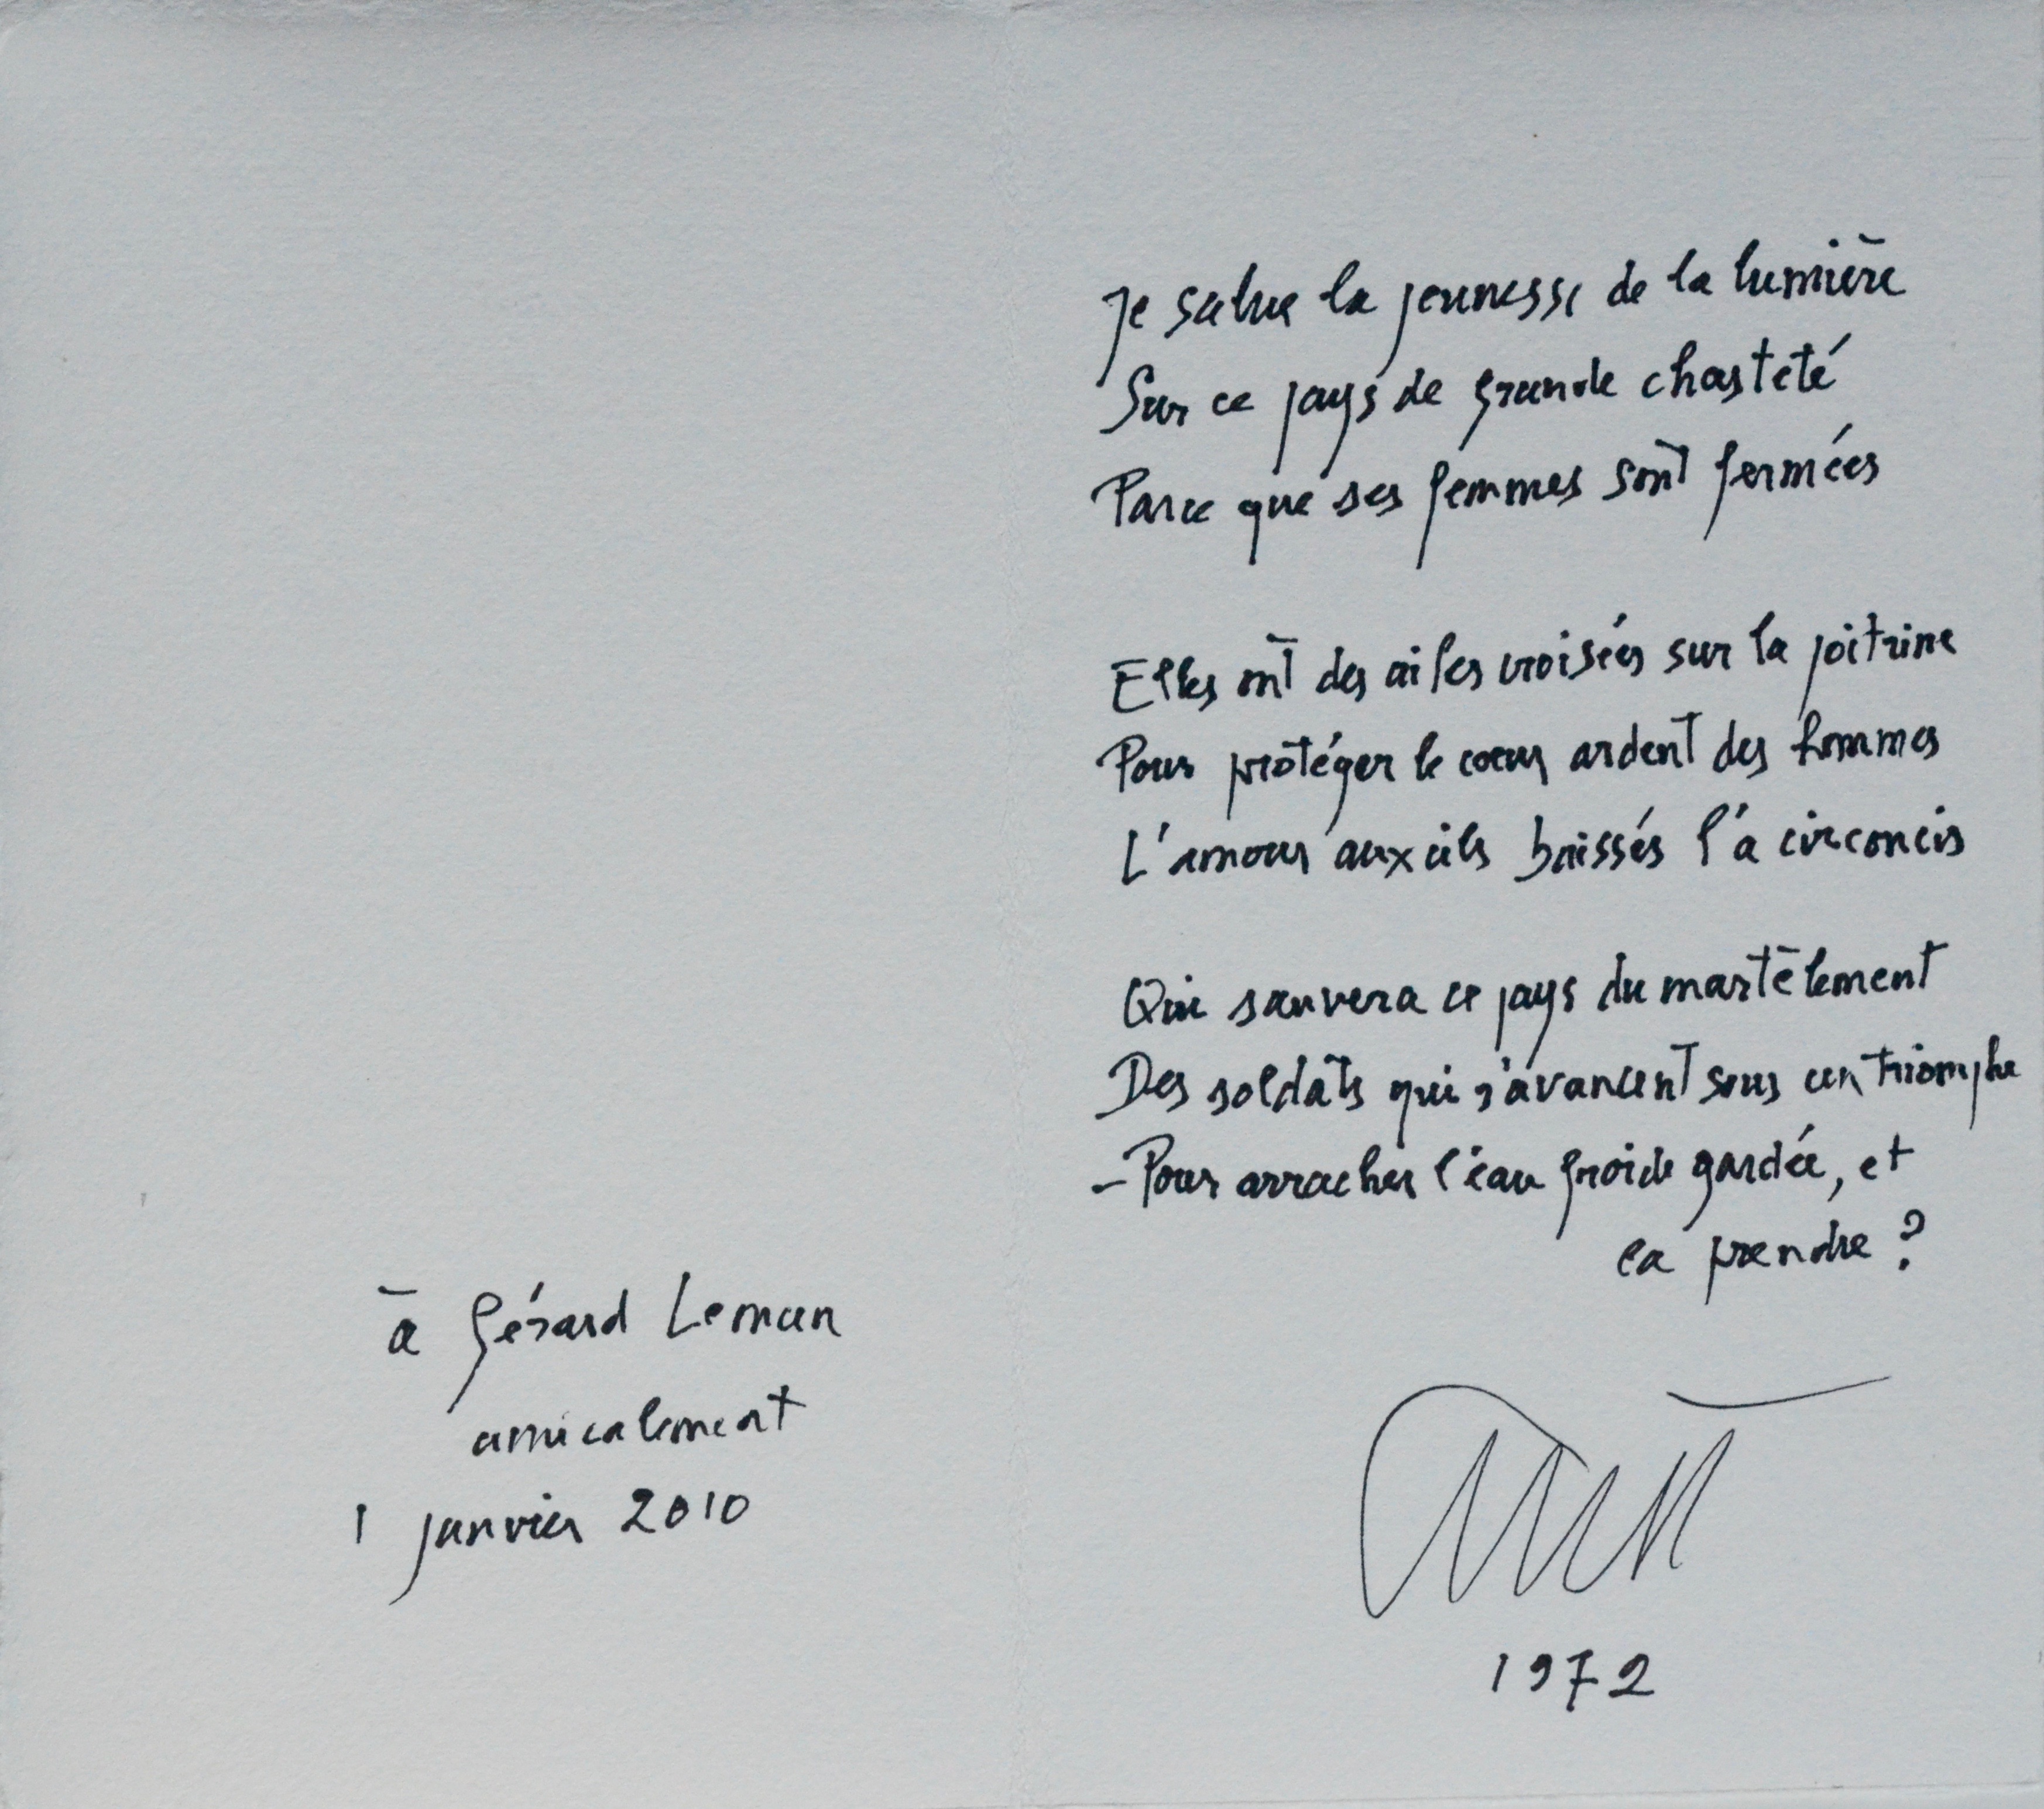 à Gérard Leman
amicalement
1 janvier 2010
Je salue la jeunesse de la lumière
Sur ce pays de grande chasteté
Parce que ses femmes sont fermées
Elles ont des ailes croisées sur la poitrine
Pour protéger le cœur ardent des hommes
L'amour aux cils baissés l'a circoncis
Qui sauvera ce pays du martèlement
Des soldats qui s'avancent sous un triomphe
– Pour arracher l'eau froide gardée, et
la prendre ?
1972